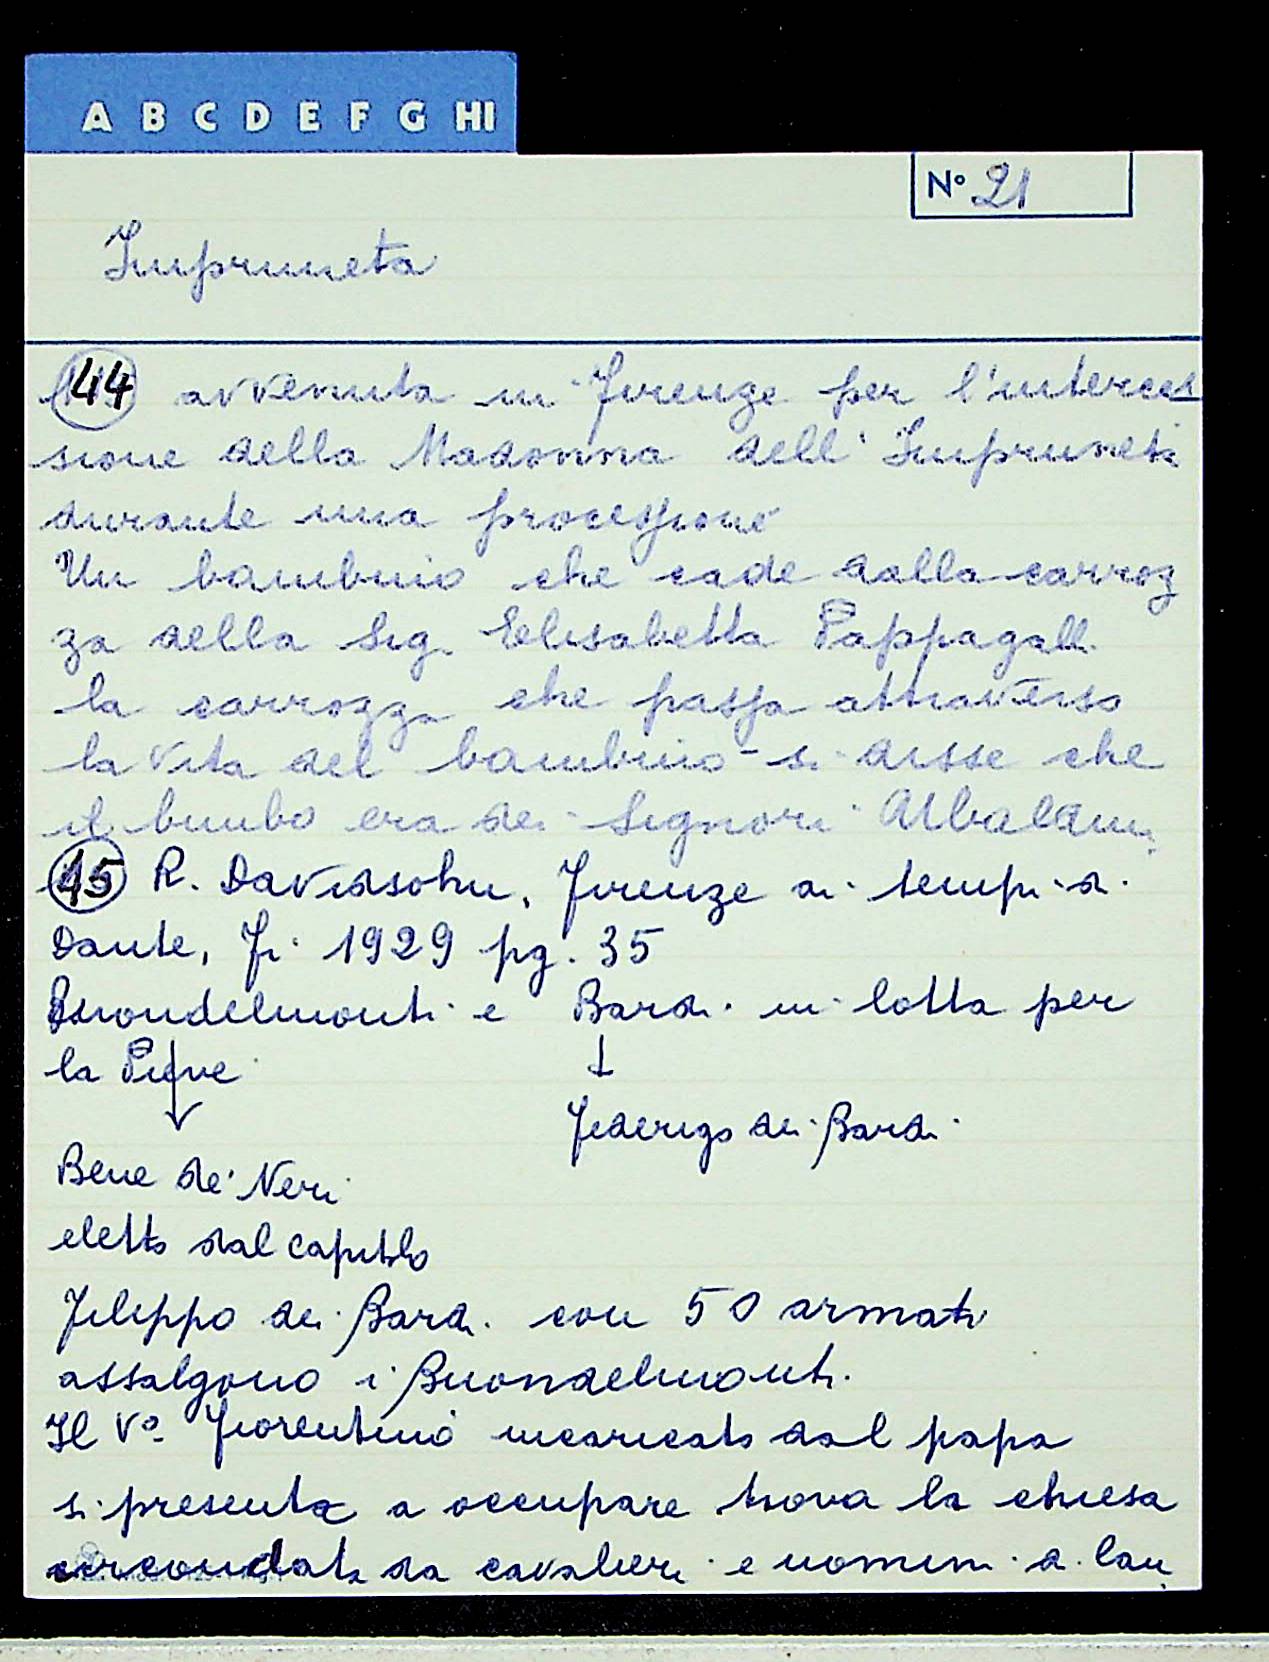 A B C D E F G HI
N° 21
Impruneta
44 avvenuta in Firenze per l'interces
sione della Madonna dell'Impruneta
durante una processione
Un bambino che cade dalla carroz
za della Sig. Elisabetta Pappagalli
la carrozza che passa attraverso
la vita del bambino - si disse che
il bimbo era dei Signori
45 R. Davidsohn, Firenze ai tempi di
Dante, Fi 1929 pg. 35
Buondelmonti e Bardi in lotta per
la Pieve ↓
↓ Federigo dei Bardi
Bene de' Neri
eletto dal capitolo
Filippo dei Bardi con 50 armati
assalgono i Buondelmonti.
Il Vº Fiorentino incaricato dal papa
si presenta a occupare trova la chiesa
circondata da cavalieri e uomini a lan